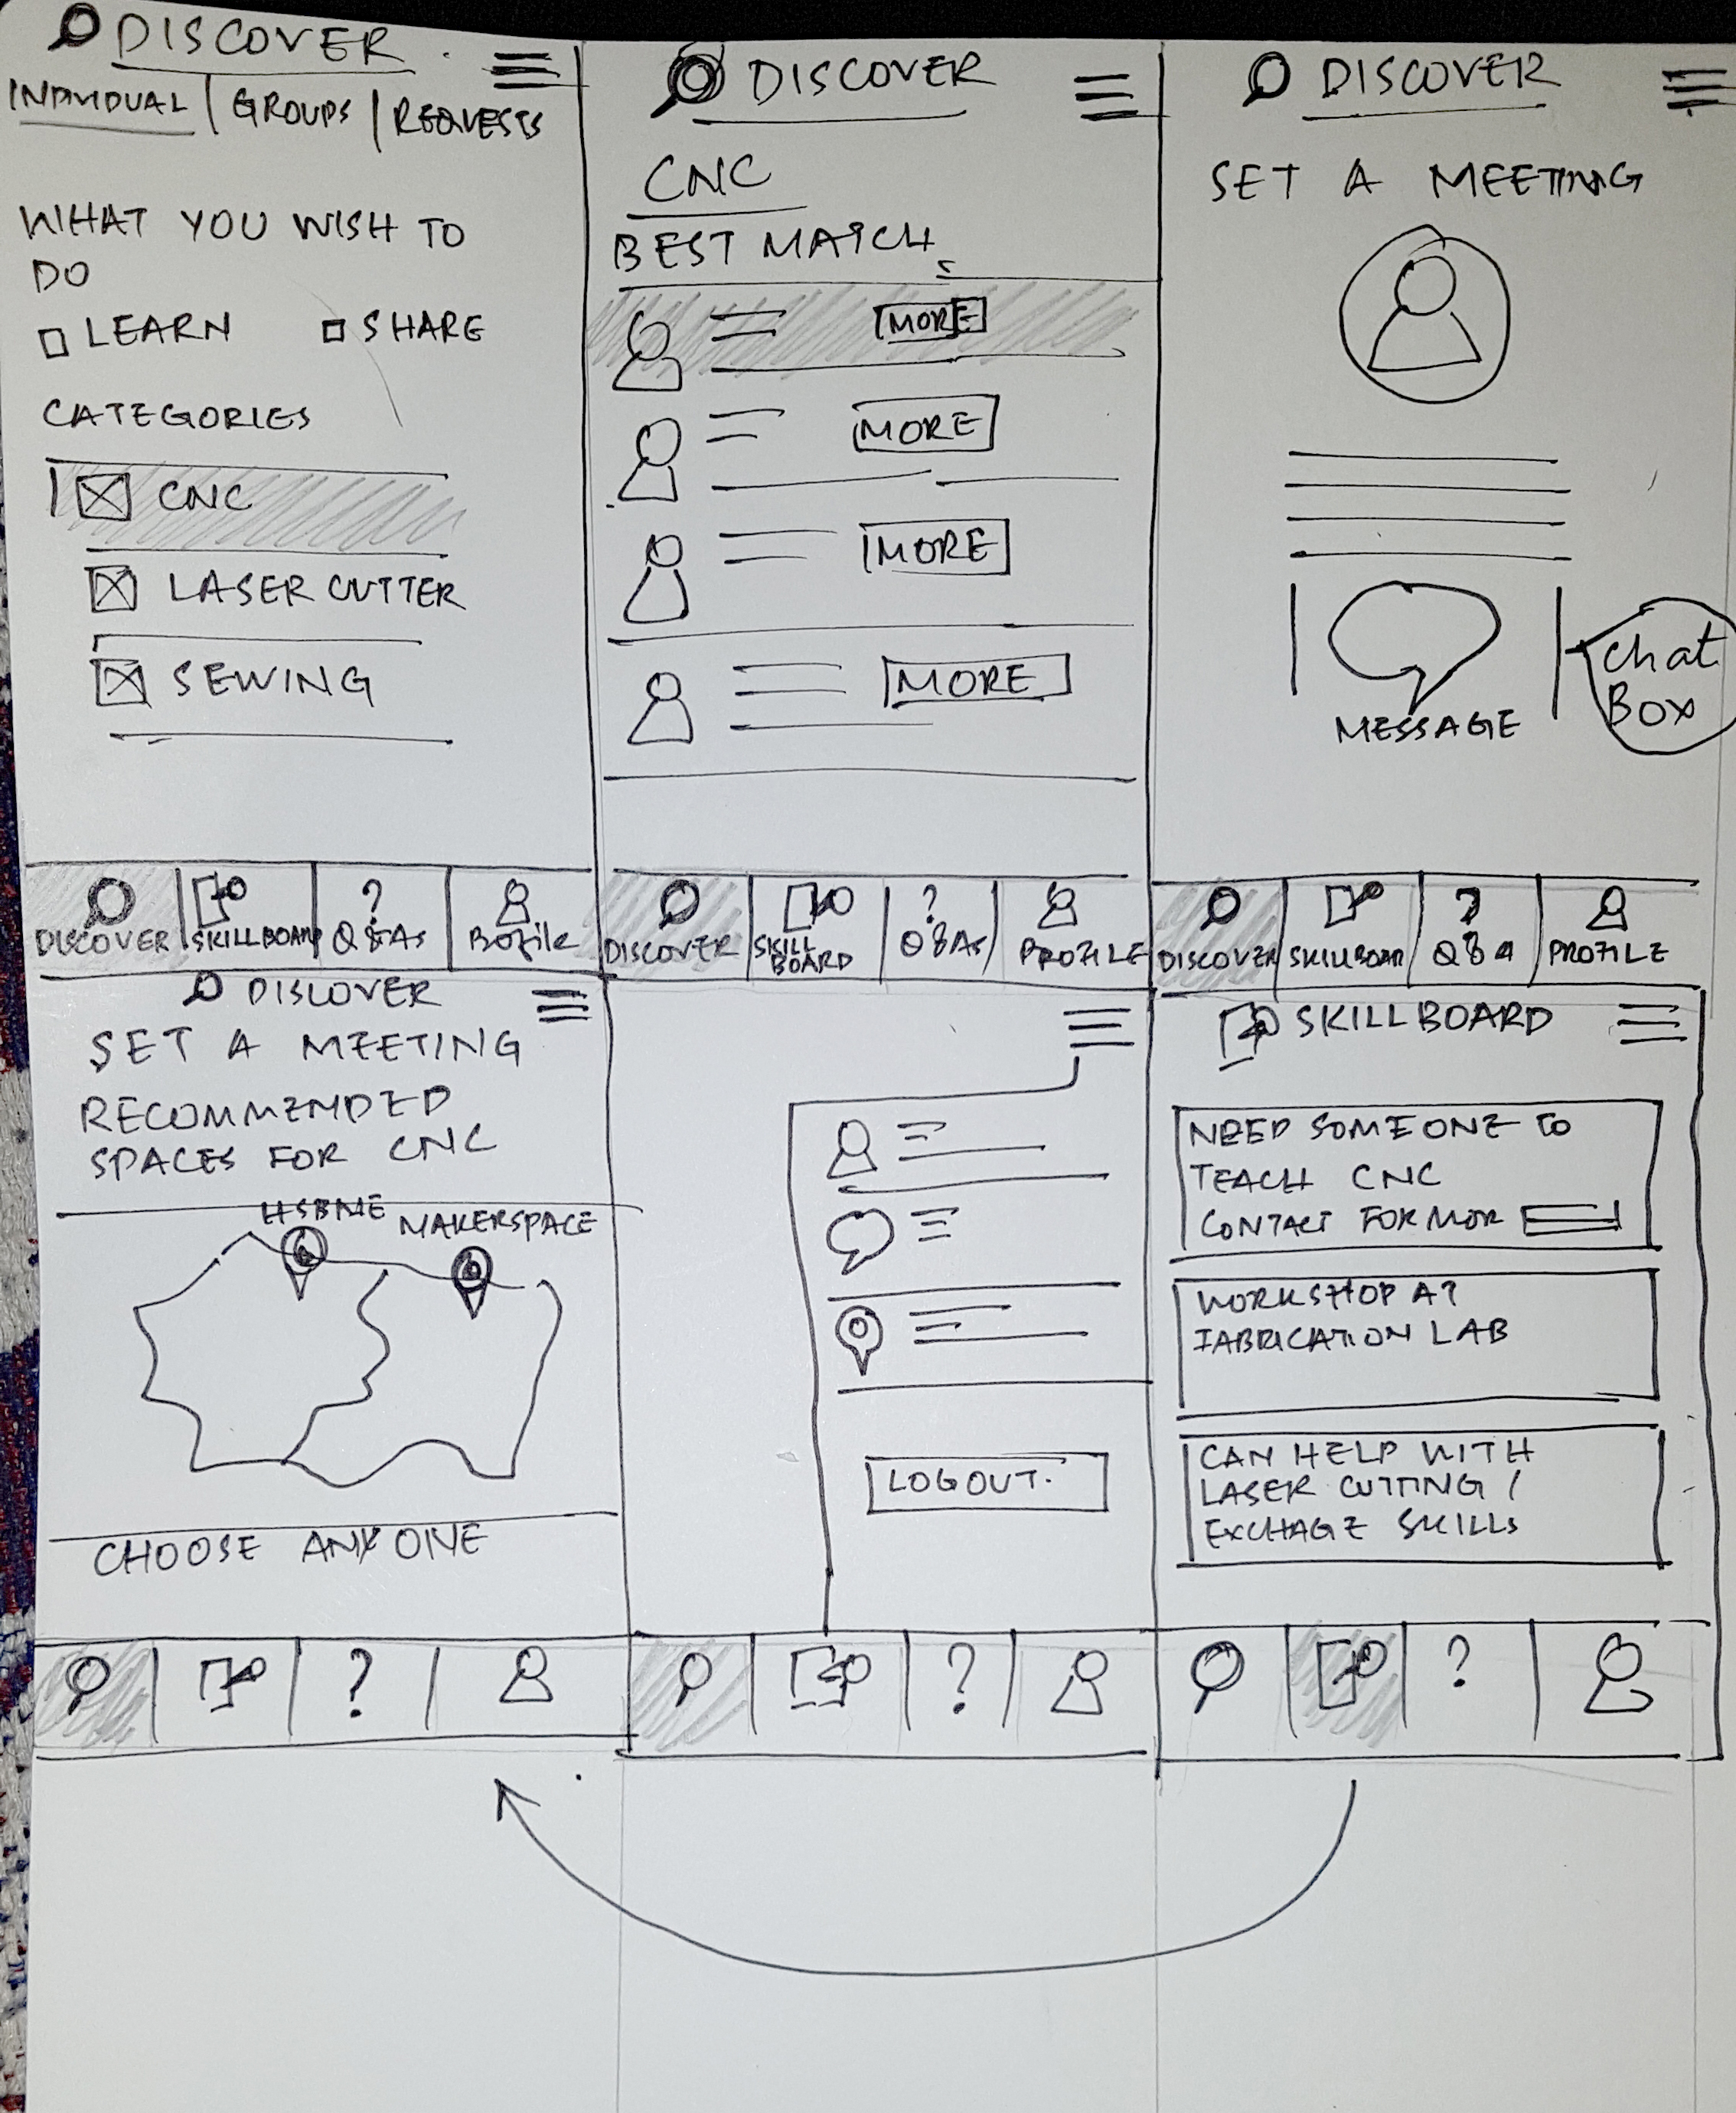 DISCOVER
INDIVIDUAL | GROUPS | REQUESTS
WHAT YOU WISH TO
DO
LEARN SHARE
CATEGORIES
CNC
LASER CUTTER
SEWING
DISCOVER SKILLBOARD Q&As Profile
DISCOVER
CNC
BEST MATCHs
MORE
MORE
MORE
MORE
DISCOVER SKILL BOARD Q&As PROFILE
DISCOVER
SET A MEETING
MESSAGE
Chat
Box
DISCOVER SKILLBOARD Q&A PROFILE
DISCOVER
SET A MEETING
RECOMMENDED
SPACES FOR CNC
HSBNE MAKERSPACE
CHOOSE ANY ONE
LOGOUT.
SKILLBOARD
NEED SOMEONE TO
TEACH CNC
CONTACT FOR MOR
WORKSHOP AT
FABRICATION LAB
CAN HELP WITH
LASER CUTTING /
EXCHAGE SKILLS